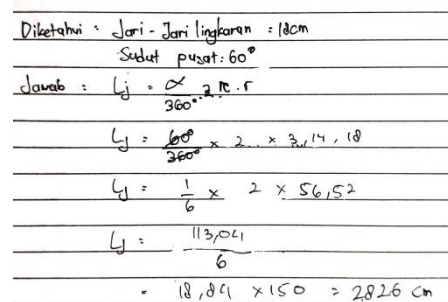 Diketahui : Jari - Jari lingkaran : 18cm
Sudut pusat : 60°
Jawab : Lj = α/360° . 2 π . r
Lj = 60°/360° × 2 × 3,14 . 18
Lj = 1/6 × 2 × 56,52
Lj = 113,04/6
= 18,84 × 150 = 2826 cm